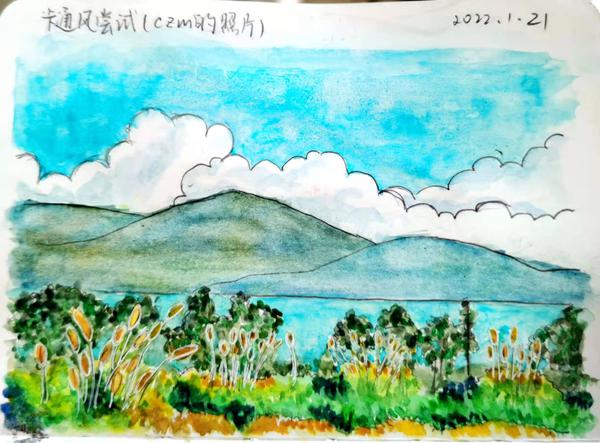 卡通风尝试(czm的照片) 2022.1.21